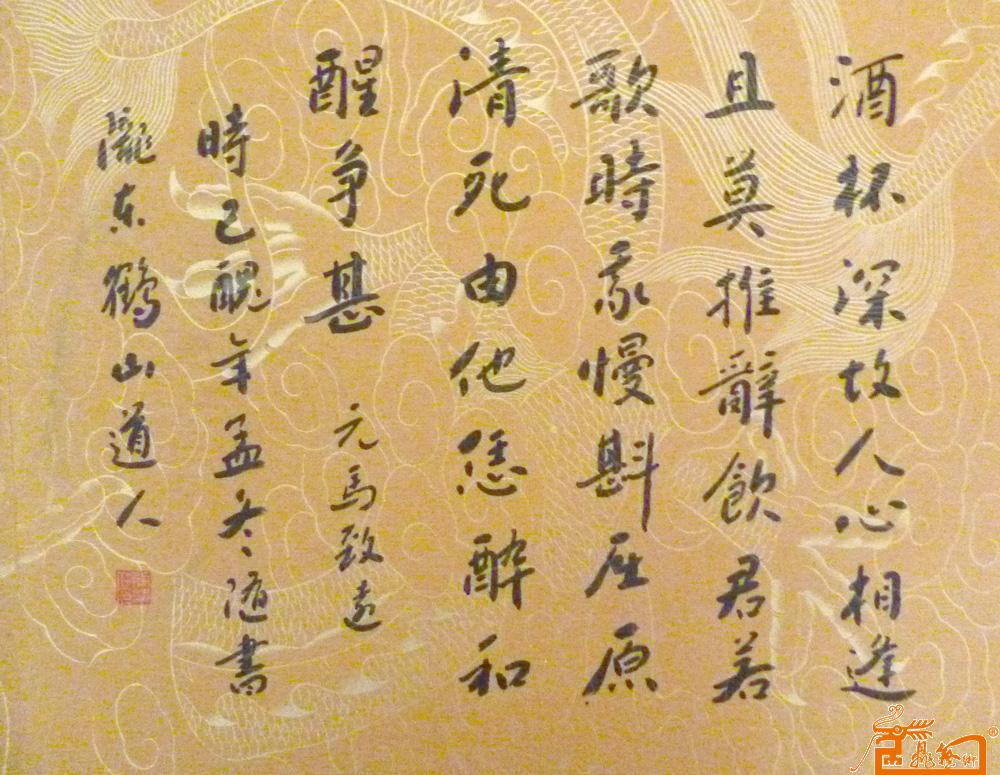 酒杯深故人心相逢
且莫推辭飲君若
歌時我慢斟屈原
清死由他恁醉和
醒爭甚 元馬致遠
時己醜年孟冬随書
隴東鶴山道人